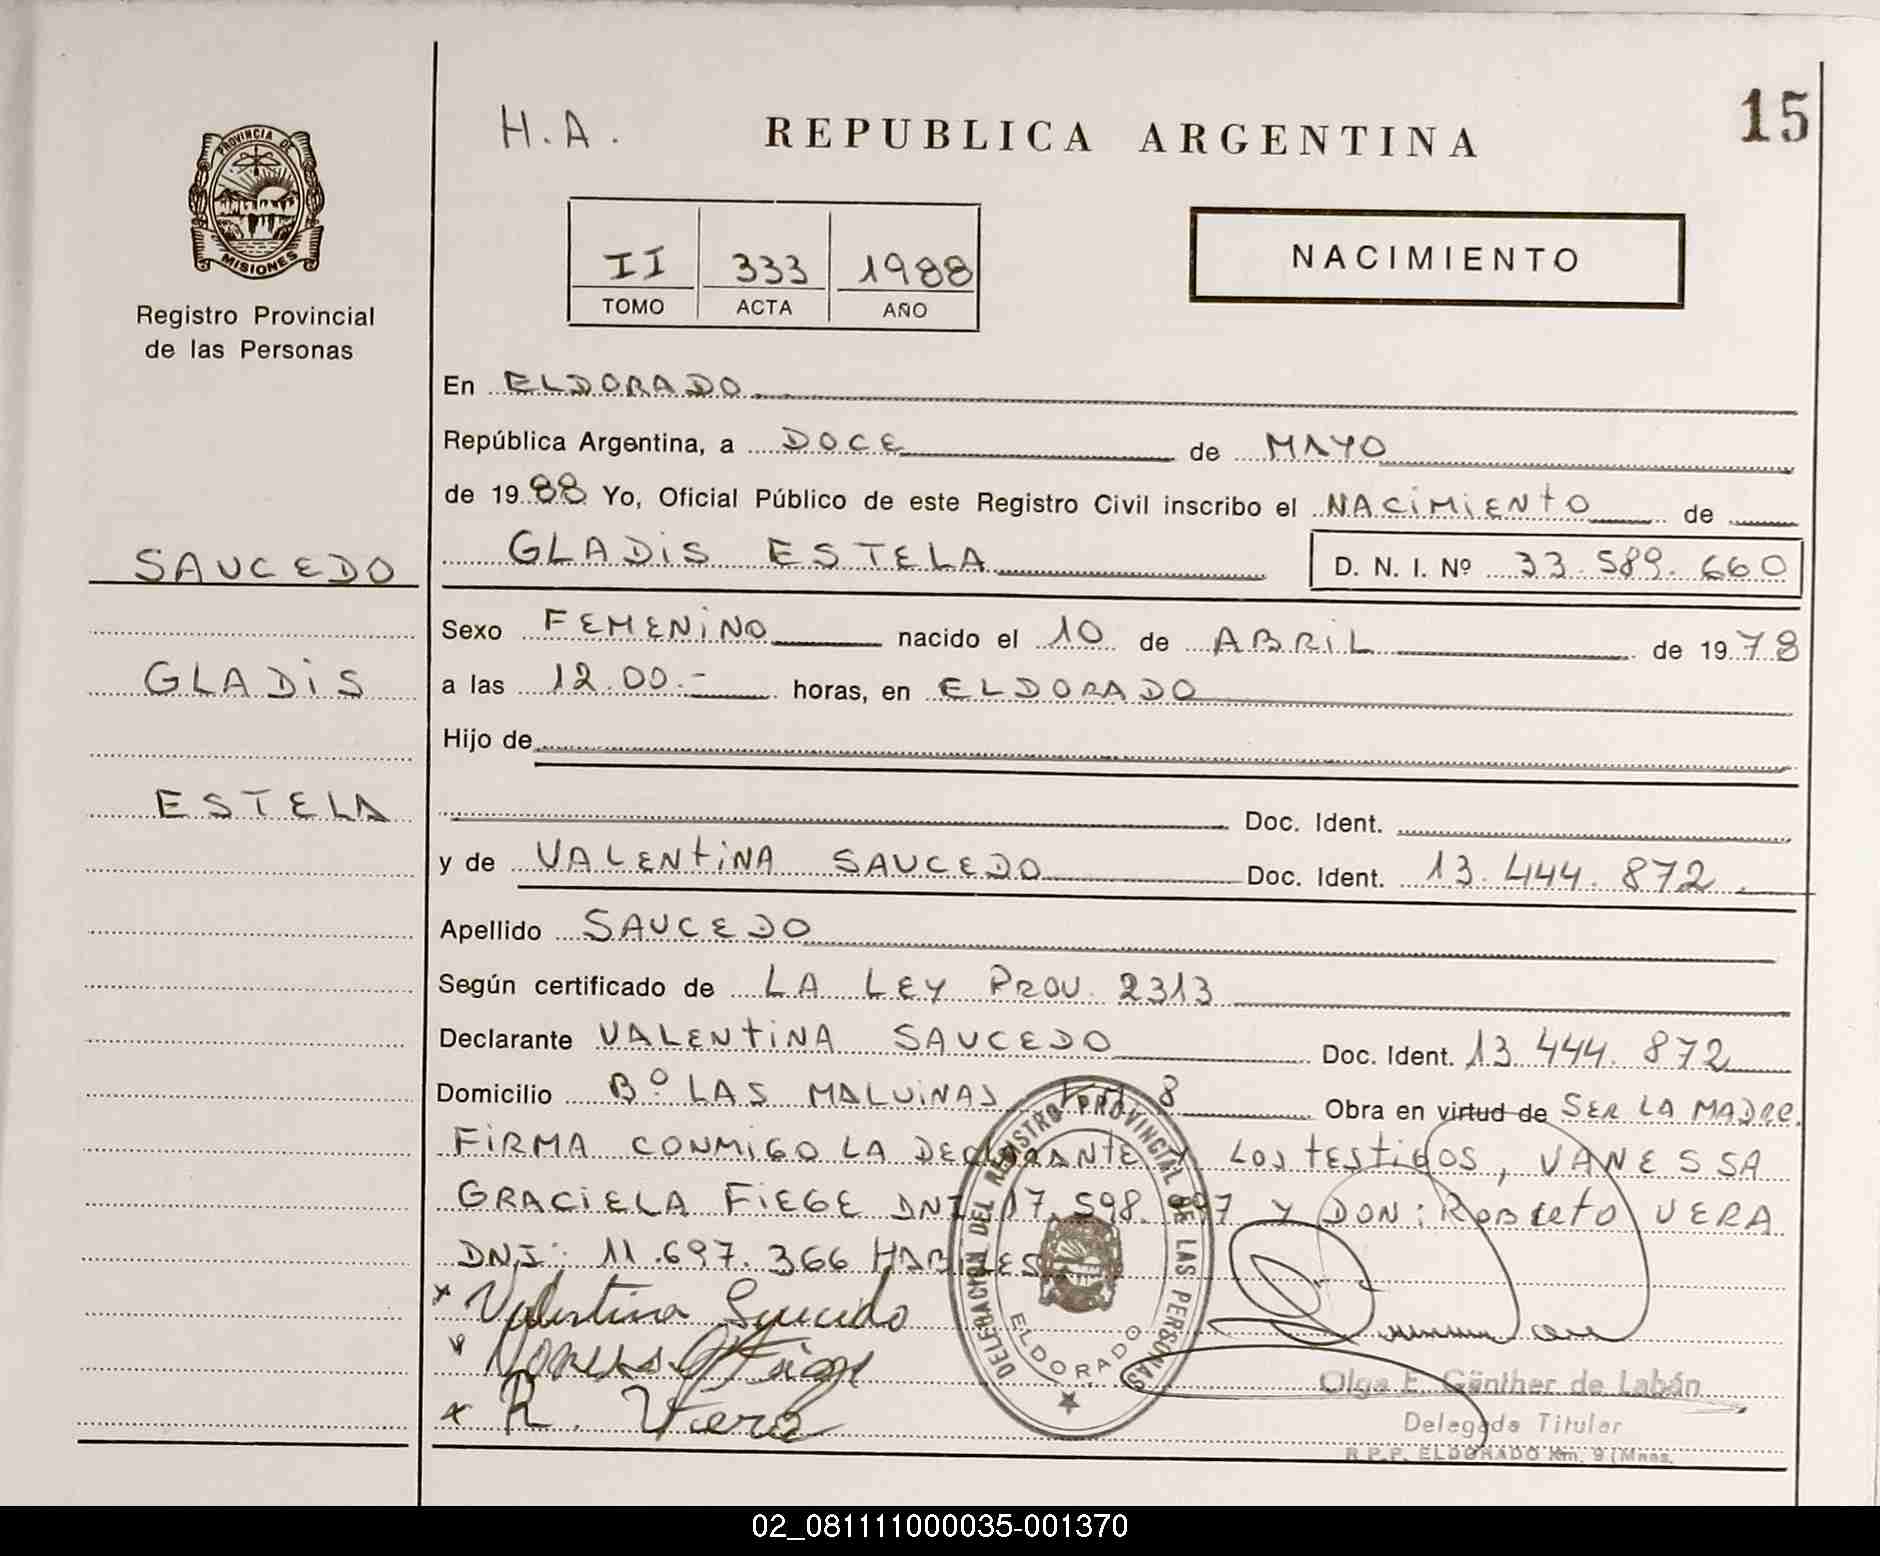 15
H.A.
REPUBLICA ARGENTINA
PROVINCIA DE
MISIONES
Registro Provincial
de las Personas
II 333 1988
TOMO ACTA AÑO
NACIMIENTO
En ELDORADO
República Argentina, a DOCE de MAYO
de 1988 Yo, Oficial Público de este Registro Civil inscribo el NACIMIENTO de
SAUCEDO
GLADIS ESTELA D. N. I. Nº 33.589.660
Sexo FEMENINO nacido el 10 de ABRIL de 1978
GLADIS
a las 12.00.- horas, en ELDORADO
Hijo de
ESTELA
Doc. Ident.
y de VALENTINA SAUCEDO Doc. Ident. 13.444.872
Apellido SAUCEDO
Según certificado de LA LEY PROV. 2313
Declarante VALENTINA SAUCEDO Doc. Ident. 13.444.872
Domicilio Bº LAS MALVINAS KM 8 Obra en virtud de SER LA MADRE.
FIRMA CONMIGO LA DECLARANTE Y LOS TESTIGOS, VANESSA
GRACIELA FIEGE DNI 17.598. Y DON: ROBERTO VERA
DNI: 11.697.366 HABILES
Valentina Saucedo
R. Viera
DELEGACION DEL REGISTRO PROVINCIAL DE LAS PERSONAS
ELDORADO
Olga E. Günther de Labán
Delegada Titular
R.P.P. ELDORADO Km. 9 (Mnes.
02_081111000035-001370